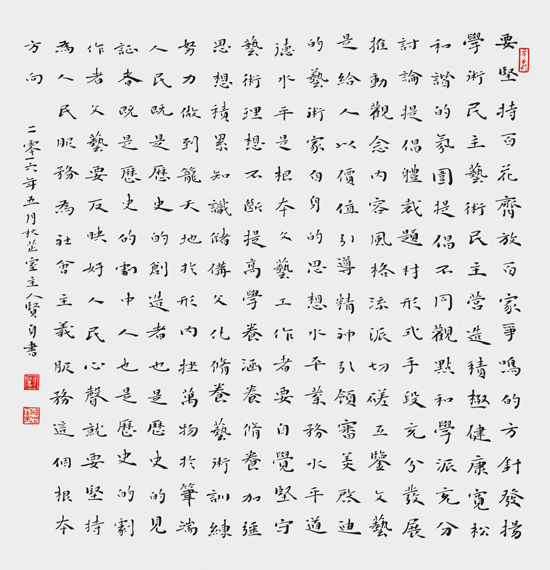 要堅持百花齊放百家爭鳴的方針發揚
學術民主藝術民主營造積極健康寬松
和諧的氛圍提倡不同觀點和學派充分
討論提倡體裁題材形式手段充分發展
推動觀念內容風格流派切磋互鑒文藝
是給人以價值引導精神引領審美啟迪
的藝術家自身的思想水平業務水平道
德水平是根本文藝工作者要自覺堅守
藝術理想不斷提高學養涵養脩養加強
思想積累知識儲備文化脩養藝術訓練
努力做到籠天地於形内挫萬物於筆端
人民既是歷史的創造者也是歷史的見
証者既是歷史的劇中人也是歷史的劇
作者文藝要反映好人民心聲就要堅持
為人民服務為社會主義服務這個根本
方向
二零一六年五月秋芷室主人賢自書